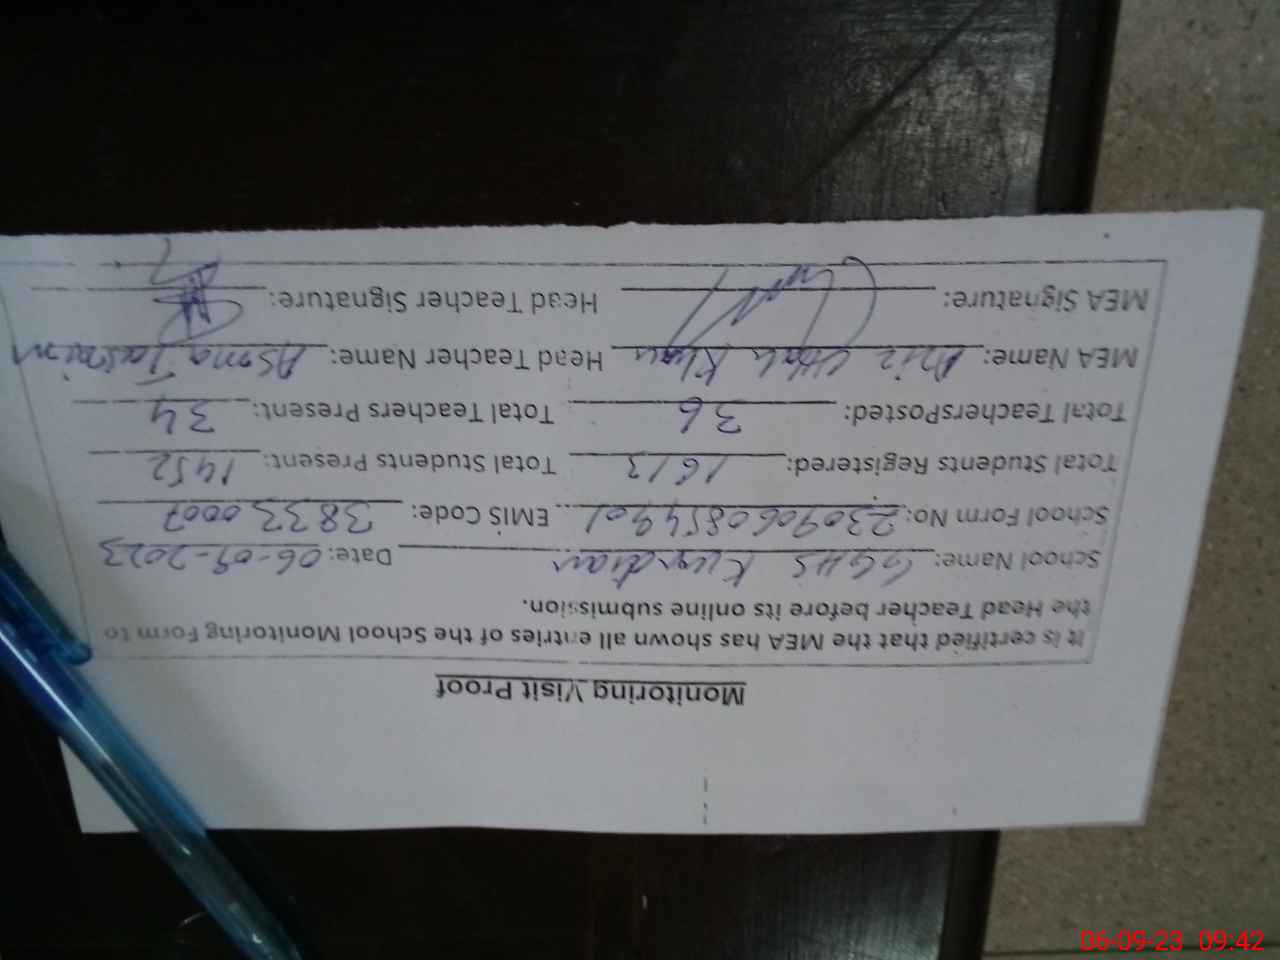 Monitoring Visit Proof
It is certified that the MEA has shown all entries of the School Monitoring Form to
the Head Teacher before its online submission.
School Name: GGHS Kundian Date: 06-09-2023
School Form No: 2309060854901 EMIS Code: 38330007
Total Students Registered: 1613 Total Students Present: 1452
Total TeachersPosted: 36 Total Teachers Present: 34
MEA Name: Khan Head Teacher Name: Asma Tasneem
MEA Signature: Head Teacher Signature:
06-09-23 09:42